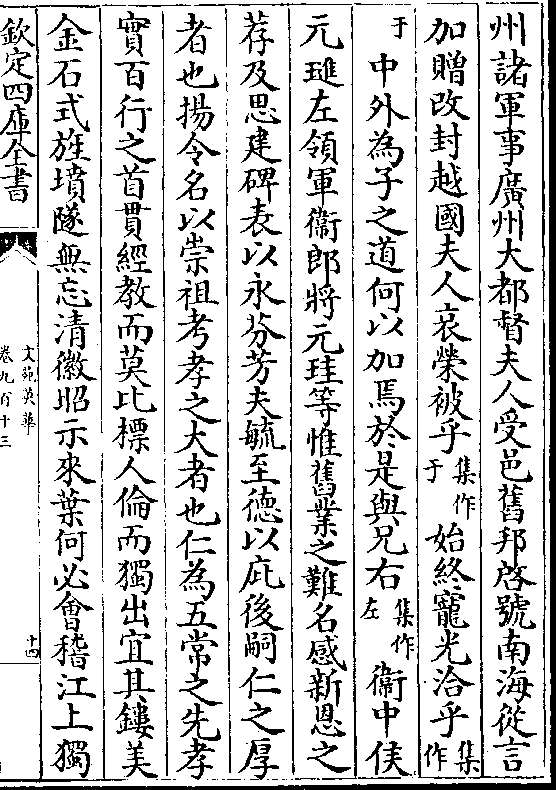 州諸軍事廣州大都督夫人受邑舊邦啓號南海從言
加贈改封越國夫人哀榮被乎集作于始終寵光洽乎集作
于中外為子之道何以加焉於是與兄右集作左衞中侯
元璡左領軍衞郎將元珪等惟舊業之難名感新恩之
荐及思建碑表以永芬芳夫毓至德以庇後嗣仁之厚
者也揚令名以崇祖考孝之大者也仁為五常之先孝
實百行之首貫經教而莫比標人倫而獨出宜其鏤美
金石式旌墳隧無忘清徽昭示來葉何必會稽江上獨
欽定四庫全書
文苑英華
卷九百十三
十四